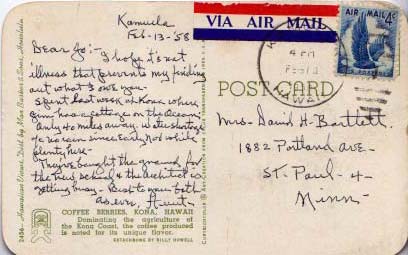 Kamuela
Feb-13-'58
Dear Jo:- I hope it's not
illness that prevents my finding
out what I owe you-
Spent last week at Kona where
Jim has a cottage on the ocean
Only 40 miles away. Water shortage
no rain since early Nov while
plenty here-
They've bought the ground for
the new school & the architect is
getting busy- Best to you both
as ever, Aunt-
COFFEE BERRIES, KONA, HAWAII
Dominating the agriculture of
the Kona Coast, the coffee produced
is noted for its unique flavor.
EKTACHROME BY BILLY HOWELL
VIA AIR MAIL
AIR MAIL 4¢
U.S. POSTAGE
4 PM
HAWAII
POST CARD
Mrs- David H- Bartlett-
1882 Portland ave-
St. Paul - 4-
Minn-